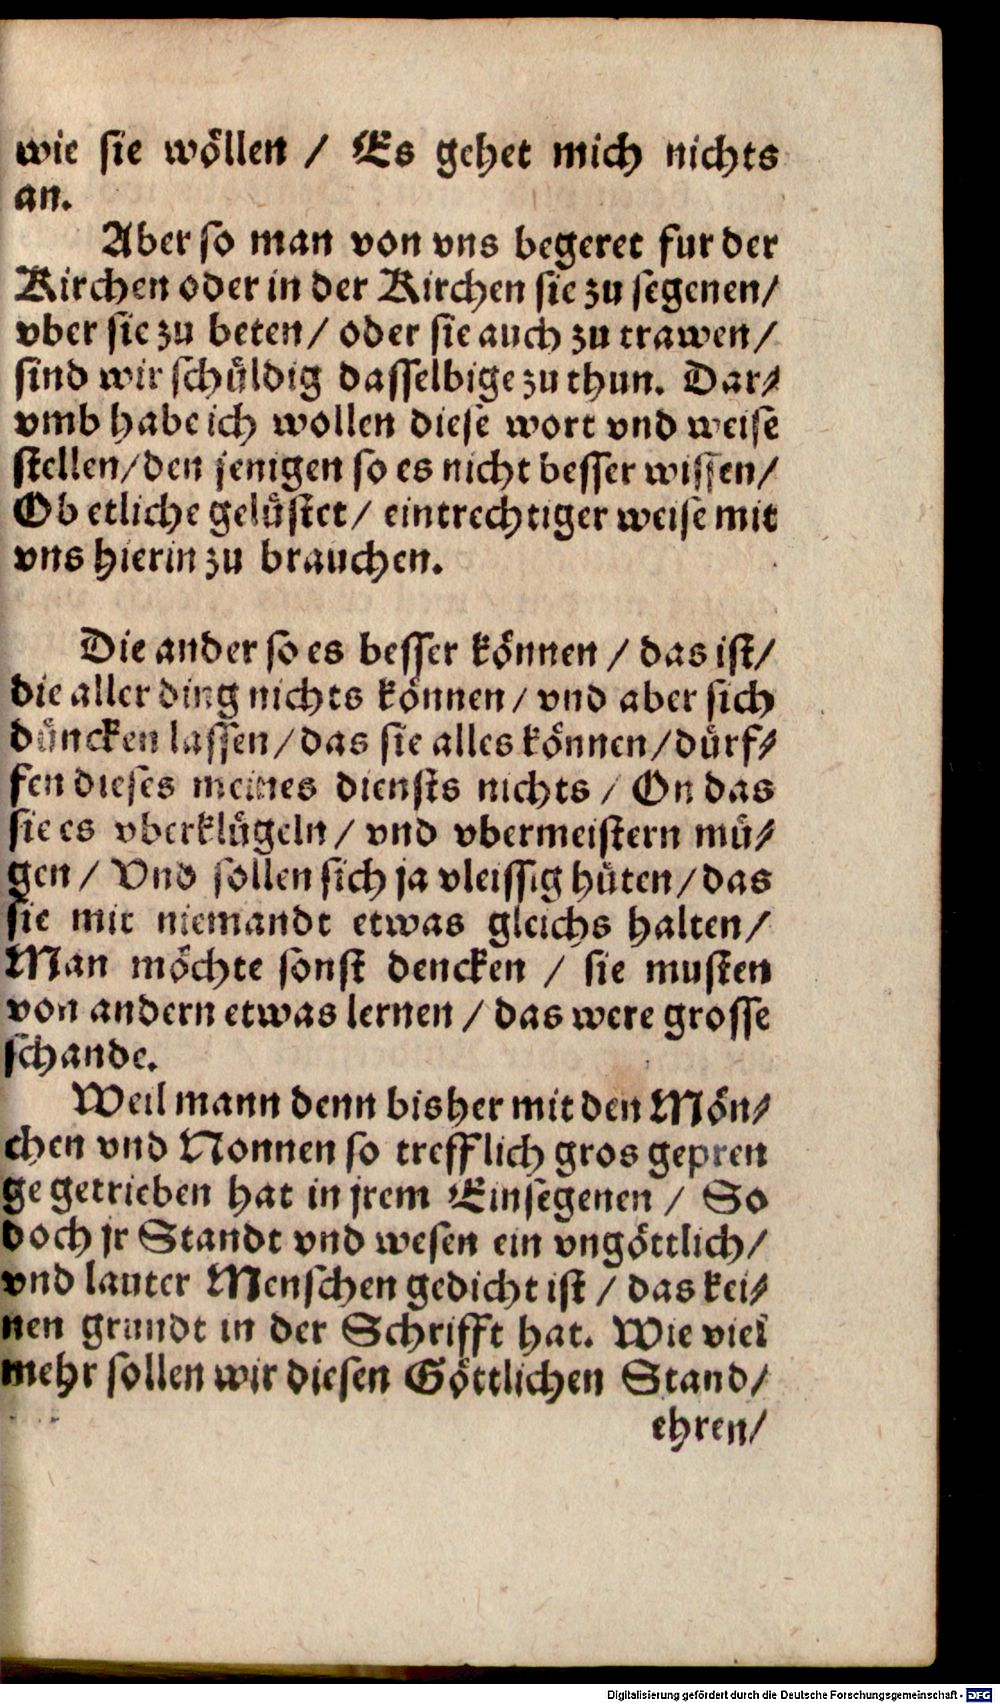 wie sie wöllen / Es gehet mich nichts
an.
Aber so man von vns begeret fur der
Kirchen oder in der Kirchen sie zu segenen/
vber sie zu beten/ oder sie auch zu trawen/
sind wir schüldig dasselbige zu thun. Dar-
vmb habe ich wollen diese wort vnd weise
stellen/den jenigen so es nicht besser wissen/
Ob etliche gelüstet/ eintrechtiger weise mit
vns hierin zu brauchen.
Die ander so es besser können / das ist/
die aller ding nichts können/ vnd aber sich
düncken lassen/das sie alles können/dürf-
fen dieses meines diensts nichts / On das
sie es vberklügeln/ vnd vbermeistern mü-
gen/ Vnd sollen sich ja vleissig hüten/das
sie mit niemandt etwas gleichs halten/
Man möchte sonst dencken / sie musten
von andern etwas lernen / das were grosse
schande.
Weil mann denn bisher mit den Mön-
chen vnd Nonnen so trefflich gros gepren
ge getrieben hat in jrem Einsegenen / So
doch jr Standt vnd wesen ein vngöttlich/
vnd lauter Menschen gedicht ist / das kei-
nen grundt in der Schrifft hat. Wie viel
mehr sollen wir diesen Göttlichen Stand/
ehren/
Digitalisierung gefördert durch die Deutsche Forschungsgemeinschaft - DFG